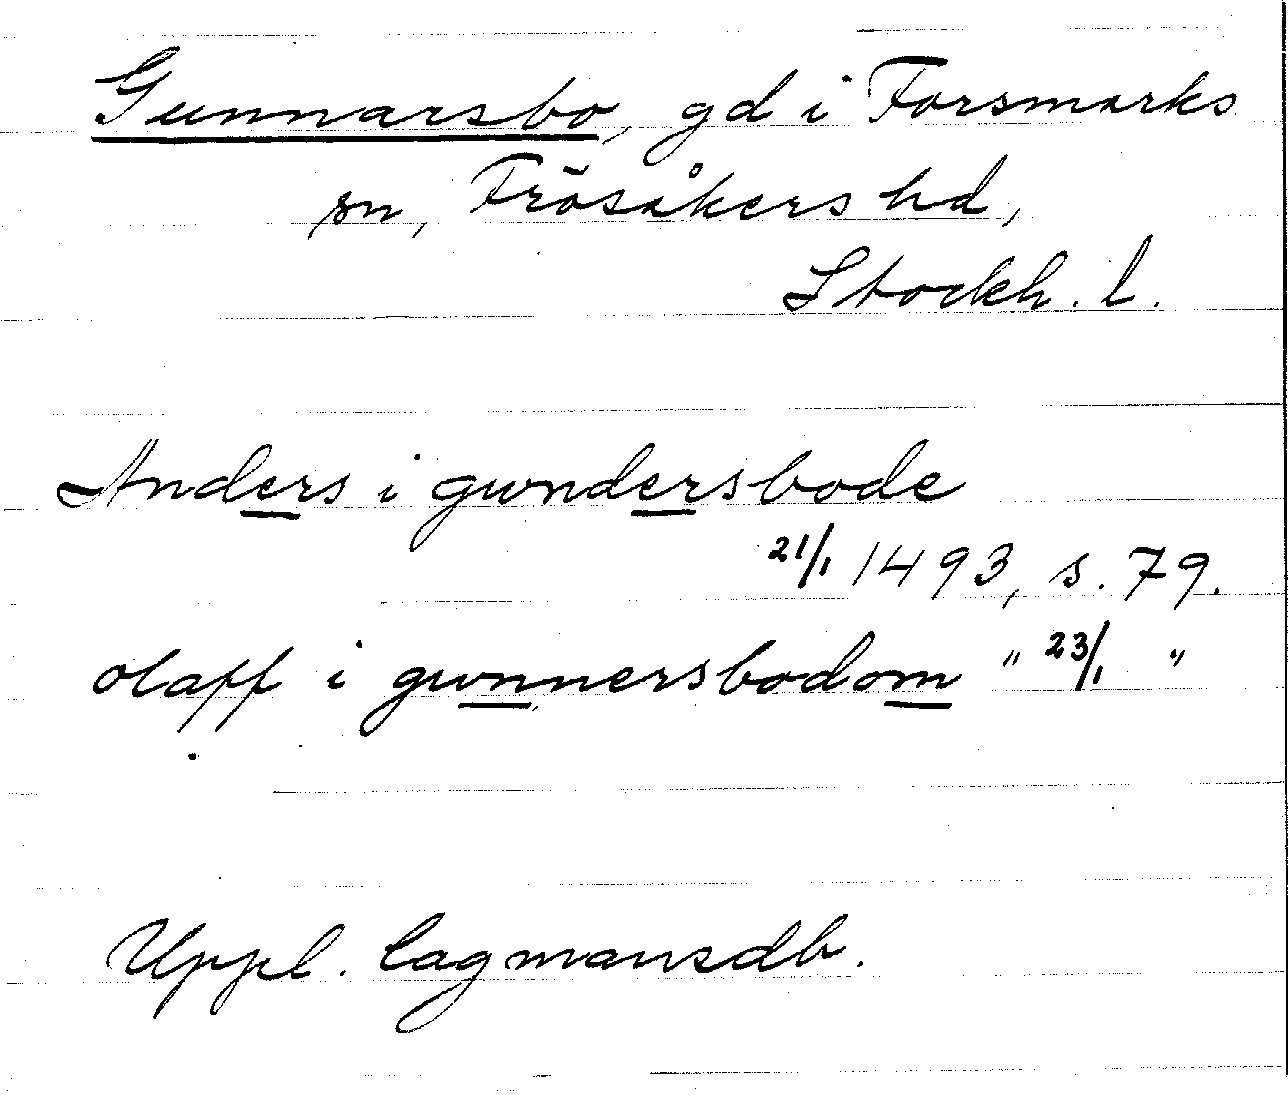 Gunnarsbo, gd i Forsmarks
sn, Frösåkers hd,
Stockh. l.
Anders i gwndersbode
21/1 1493, s. 79.
olaff i gwnnersbodom " 23/1 "
Uppl. lagmansdb.